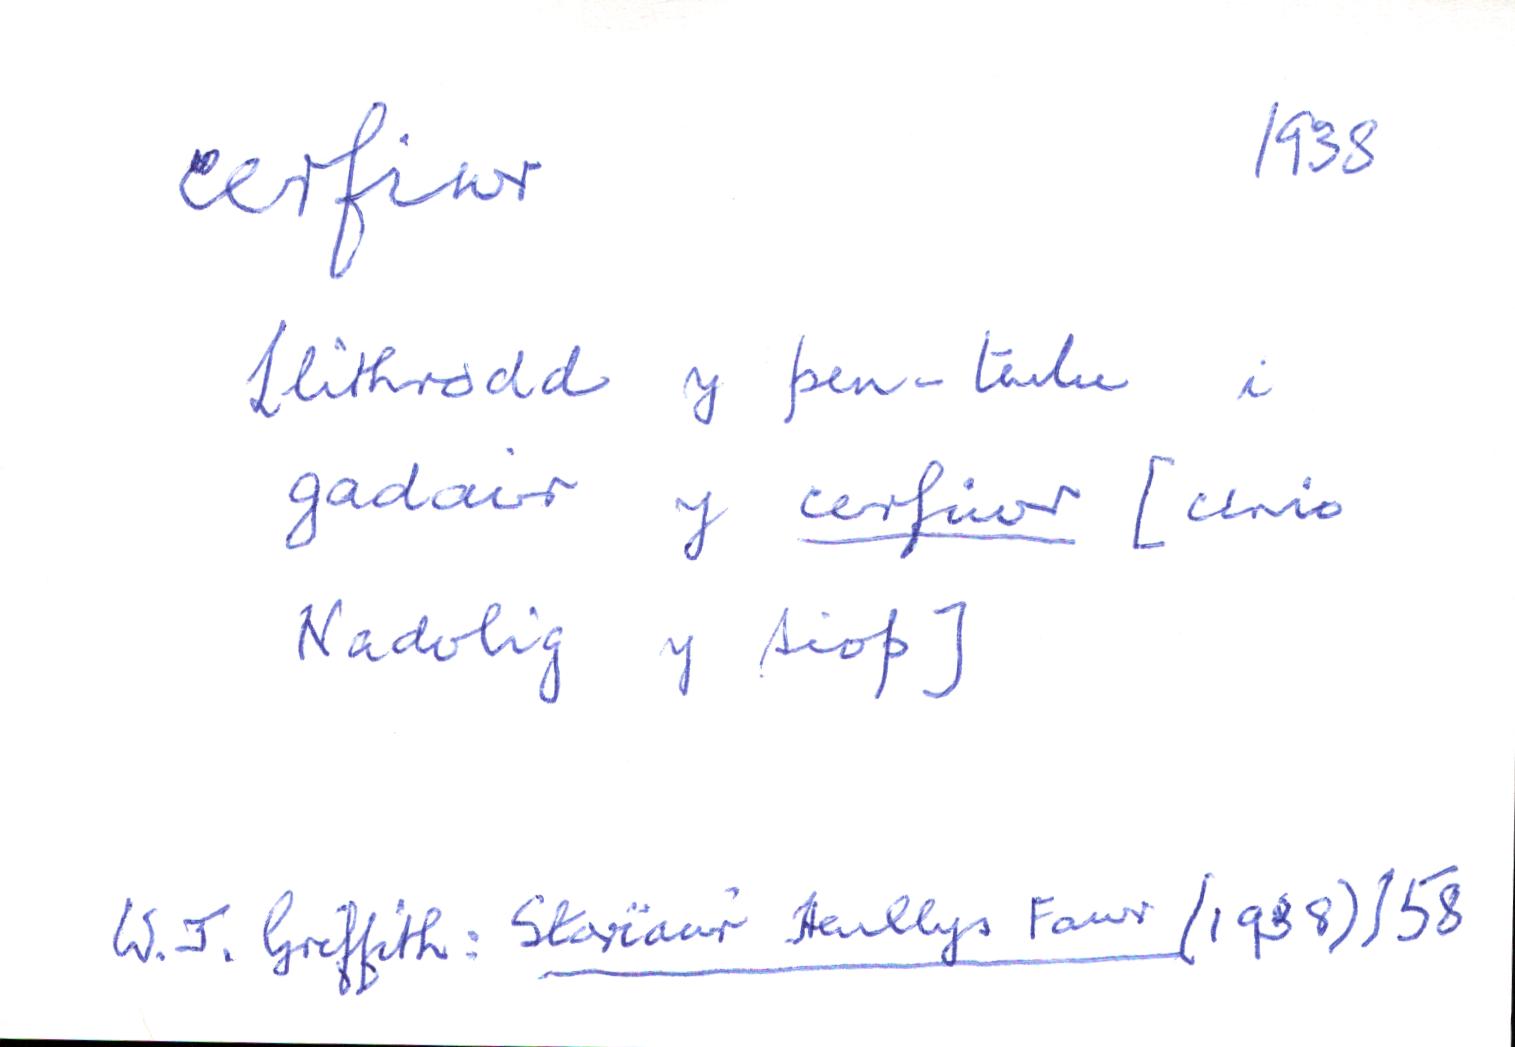 cerfiwr 1938
Llithrodd y pen-teulu i
gadair y cerfiwr [cinio
Nadolig y siop]
W.J. Griffith: Storïau'r Henllys Fawr (1938) 158